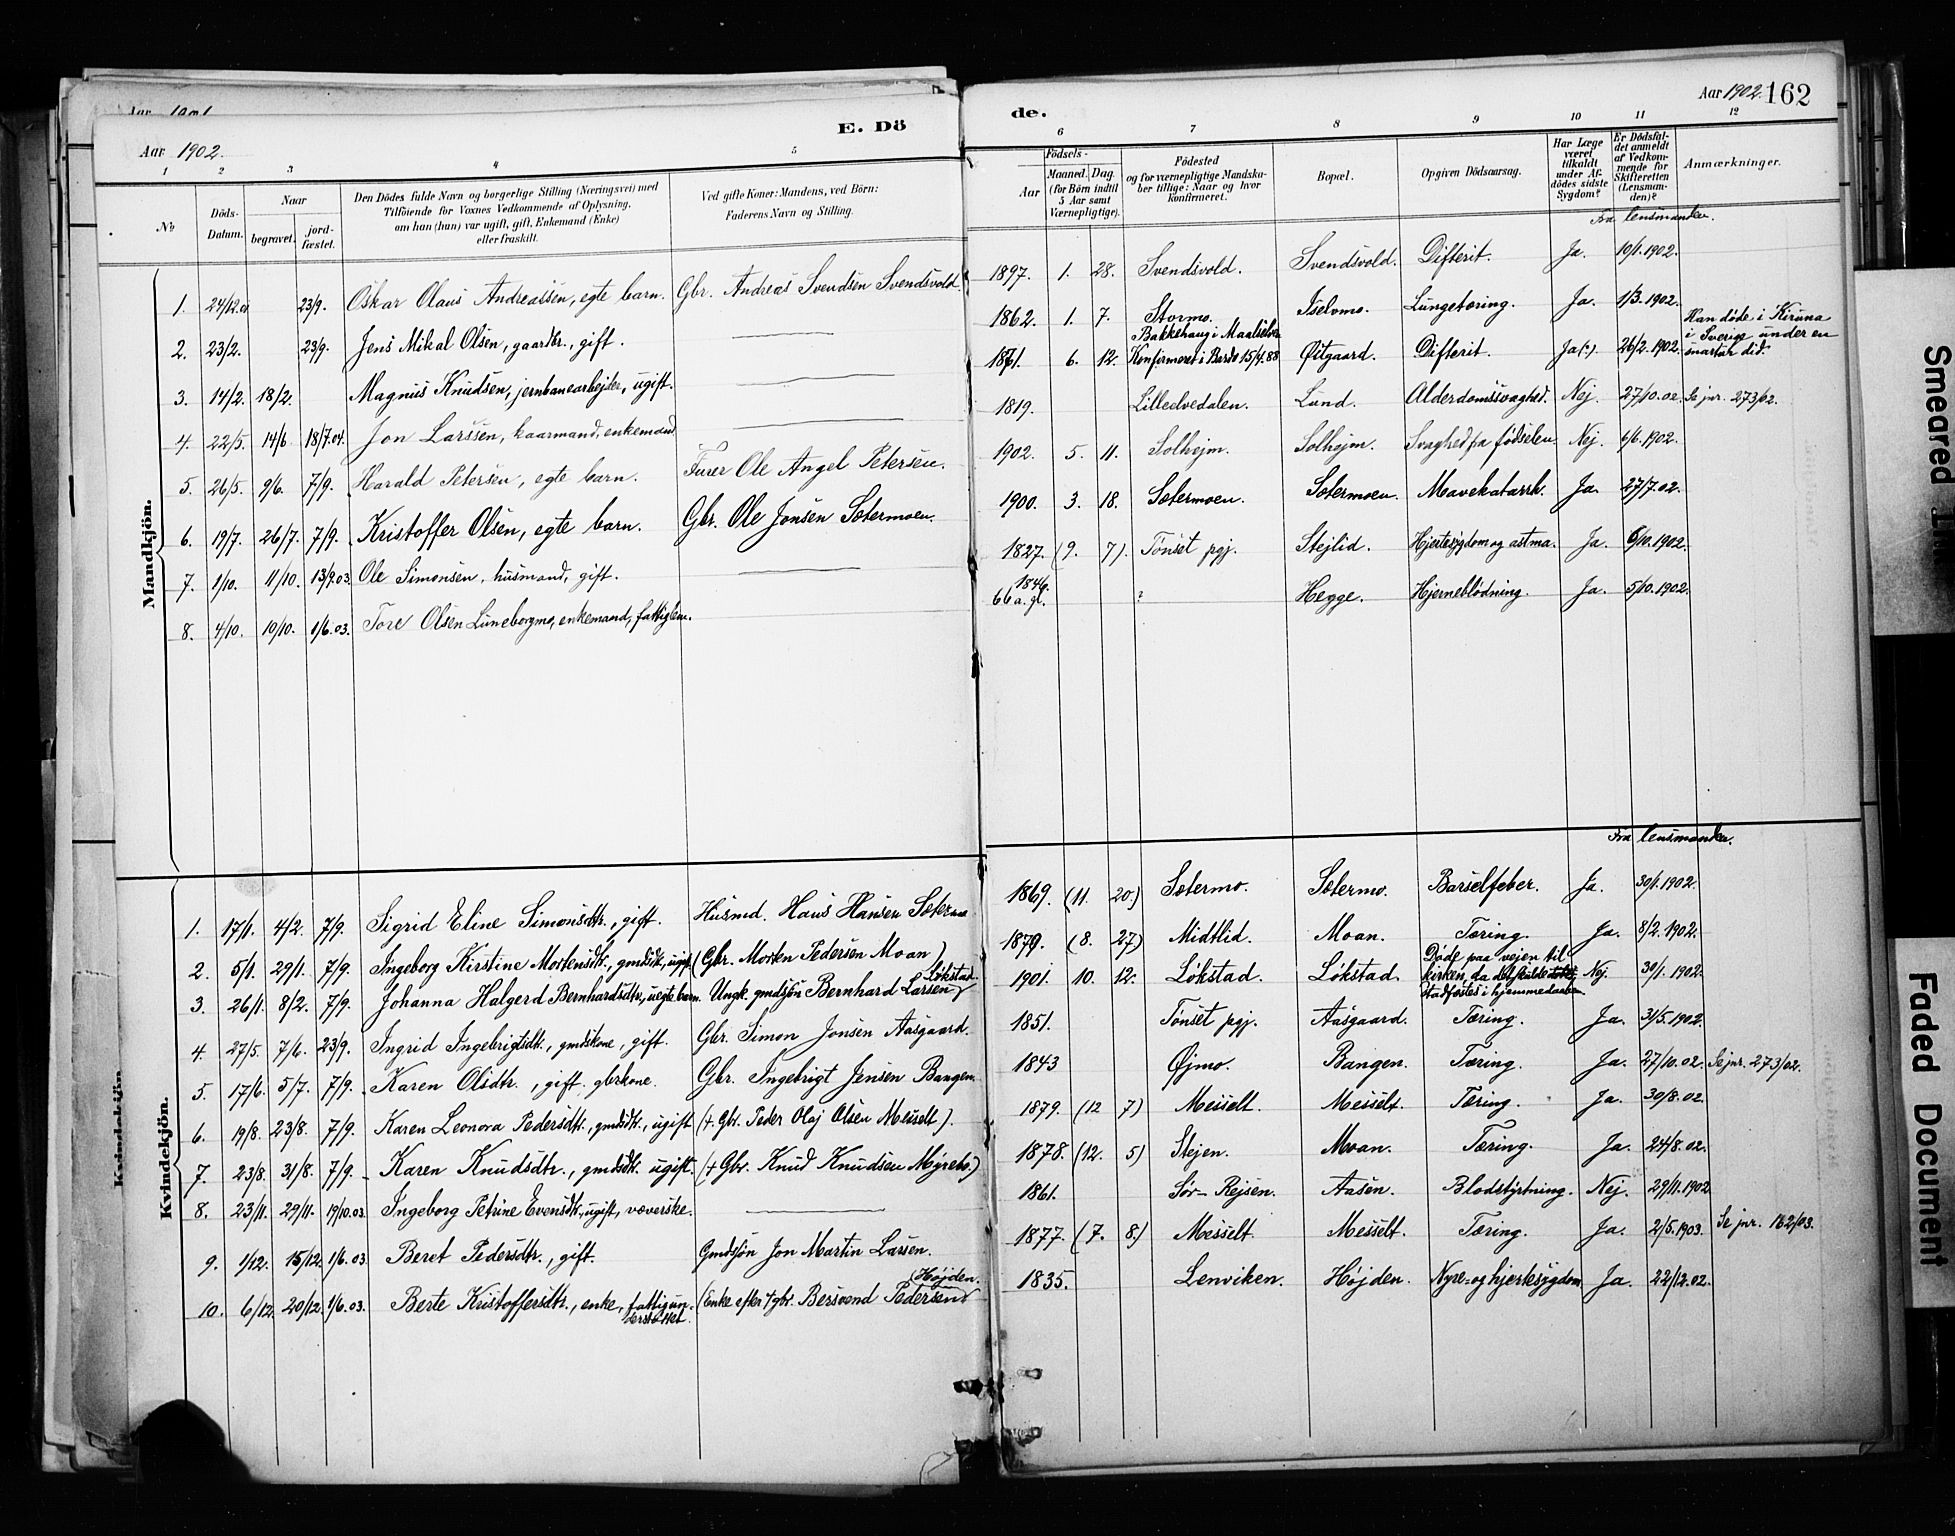 Aar 1901
E. Dö
de.
Aar 1902. 162
Aar 1902.
1 2 3 4 5 6 7 8 9 10 11 12
No
Döds-Datum.
Naar
begravet.
jordfæstet.
Den Dödes fulde Navn og borgerlige Stilling (Næringsvei) med
Tilföiende for Voxnes Vedkommende af Oplysning,
om han (hun) var ugift, gift, Enkemand (Enke)
eller fraskilt.
Ved gifte Koner: Mandens, ved Börn:
Faderens Navn og Stilling.
Födsels-
Aar
Maaned. Dag.
(for Börn indtil
5 Aar samt
Værnepligtige).
Födested
og for værnepligtige Mandskaber tillige: Naar og hvor
konfirmeret.
Bopæl.
Opgiven Dödsaarsag.
Har Læge
været
tilkaldt
under Afdödes sidste
Sygdom?
Er Dödsfaldet anmeldt
af Vedkommende for
Skifteretten
(Lensmanden)?
Anmærkninger.
Fra lensmanden.
Mandkjön.
1. 24/12.01 23/9. Oskar Olaus Andreassen, egte barn. Gbr. Andreas Svendsen Svendsvold. 1897. 1. 28. Svendsvold. Svendsvold. Difterit. Ja. 10/1.1902.
2. 23/2. 23/9. Jens Mikal Olsen, gaardbr., gift. 1862. 1. 7. Stormo. Iselvmo. Lungetæring. Ja. 1/3.1902.
3. 14/2. 18/2. Magnus Knudsen, jernbanearbejder, ugift. 1871. 6. 12. Bakkehaug i Maalselven Konfirmeret i Bardo 15/7.88 Østgaard. Difterit. Ja(?) 26/2.1902. Han døde i Kiruna
i Sverige under en
snartur did.
4. 22/5. 14/6. 18/7.04. Jon Larssen, kaarmand, enkemand. 1819. Lilleelvedalen. Lund. Alderdomssvaghed. Nej. 27/10.02. Se jnr. 273/02.
5. 26/5. 9/6. 7/9. Harald Petersen, egte barn. Furer Ole Angel Petersen. 1902. 5. 11. Solhejm. Solhejm. Svaghed fra fødselen Nej. 6/6.1902.
6. 19/7. 26/7. 7/9. Kristoffer Olsen, egte barn. Gbr. Ole Jonsen Sætermoen. 1900. 3. 18. Sætermoen. Sætermoen. Mavekatarrh. Ja. 27/7.02.
7. 1/10. 11/10. 13/9.03. Ole Simonsen, husmand, gift. 1827. (9. 7). Tønset pgj. Stejlid. Hjertesygdom og astma. Ja. 6/10.1902.
8. 4/10. 10/10. 1/6.03. Tore Olsen Luneborgmo, enkemand, fattiglem. 1846. 66 a. gl. ? Hegge. Hjerneblödning. Ja. 5/10.1902.
Fra lensmanden.
Kvindekjön.
Kvindekjön.
1. 17/1. 4/2. 7/9. Sigrid Eline Simonsdtr., gift. Husmd. Hans Hansen Sætermo 1869. (11. 20.) Sætermo. Sætermo. Barselfeber. Ja. 30/1.1902.
2. 5/1. 29/1. 7/9. Ingeborg Kirstine Mortensdtr., gmdsdtr, ugift. (Gbr. Morten Pedersen Moan) 1879. (8. 27) Midtlid. Moan. Tæring. Ja. 8/2.1902.
3. 26/1. 8/2. 7/9. Johanna Halgerd Bernhardsdtr., uegte barn. Ungk. gmdsøn Bernhard Larsen Løkstad. 1901. 10. 12. Løkstad. Løkstad. Døde paa vejen til
kirken, da det skulde
stadfæstes i hjemmedaaben Nej. 30/1.1902.
4. 27/5. 7/6. 23/9. Ingrid Ingebrigtsdtr., gmdskone, gift. Gbr. Simon Jonsen Aasgaard. 1851. Tønset pgj. Aasgaard. Tæring. Ja. 31/5.1902.
5. 17/6. 5/7. 7/9. Karen Olsdtr., gift. gbrkone. Gbr. Ingebrigt Jensen Bangen. 1843 Øjmo. Bangen. Tæring. Ja. 27/10.02. Se jnr. 273/02.
6. 19/8. 23/8. 7/9. Karen Leonora Pedersdtr., gmdsdtr., ugift (+ Gbr. Peder Olaj Olsen Messelt). 1879. (12 7) Messelt. Messelt. Tæring. Ja. 30/8.02.
7. 23/8. 31/8. 7/9. Karen Knudsdtr., gmdsdtr. ugift. (+ Gbr. Knud Knudsen Myrebø.) 1878. (12. 5) Stejen. Moan. Tæring. Ja. 24/8.02.
8. 23/11. 29/11. 19/10.03. Ingeborg Petrine Evensdtr., ugift, væverske. 1861. Sör-Rejsen. Aasen. Blodstyrtning. Nej. 29/11.1902
9. 1/12. 15/12. 1/6.03. Beret Pedersdtr., gift. Gmdsøn Jon Martin Larsen. 1877. (7. 8.) Messelt. Messelt. Tæring. Ja. 2/5.1903. Se jnr. 162/03.
10. 6/12. 20/12. 1/6.03. Berte Kristoffersdtr., enke, fattigunderstøttet. (Enke efter + gbr. Bersvend Pedersen Højden. 1835. Lenviken. Højden. Nyre- og hjertesygdom Ja. 22/12.02.
Smeared Ink
Faded Document